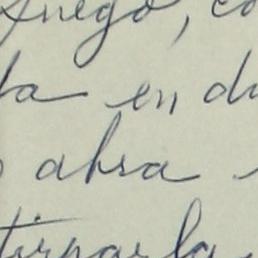 fuego, co
ta en du
abra
tirparla